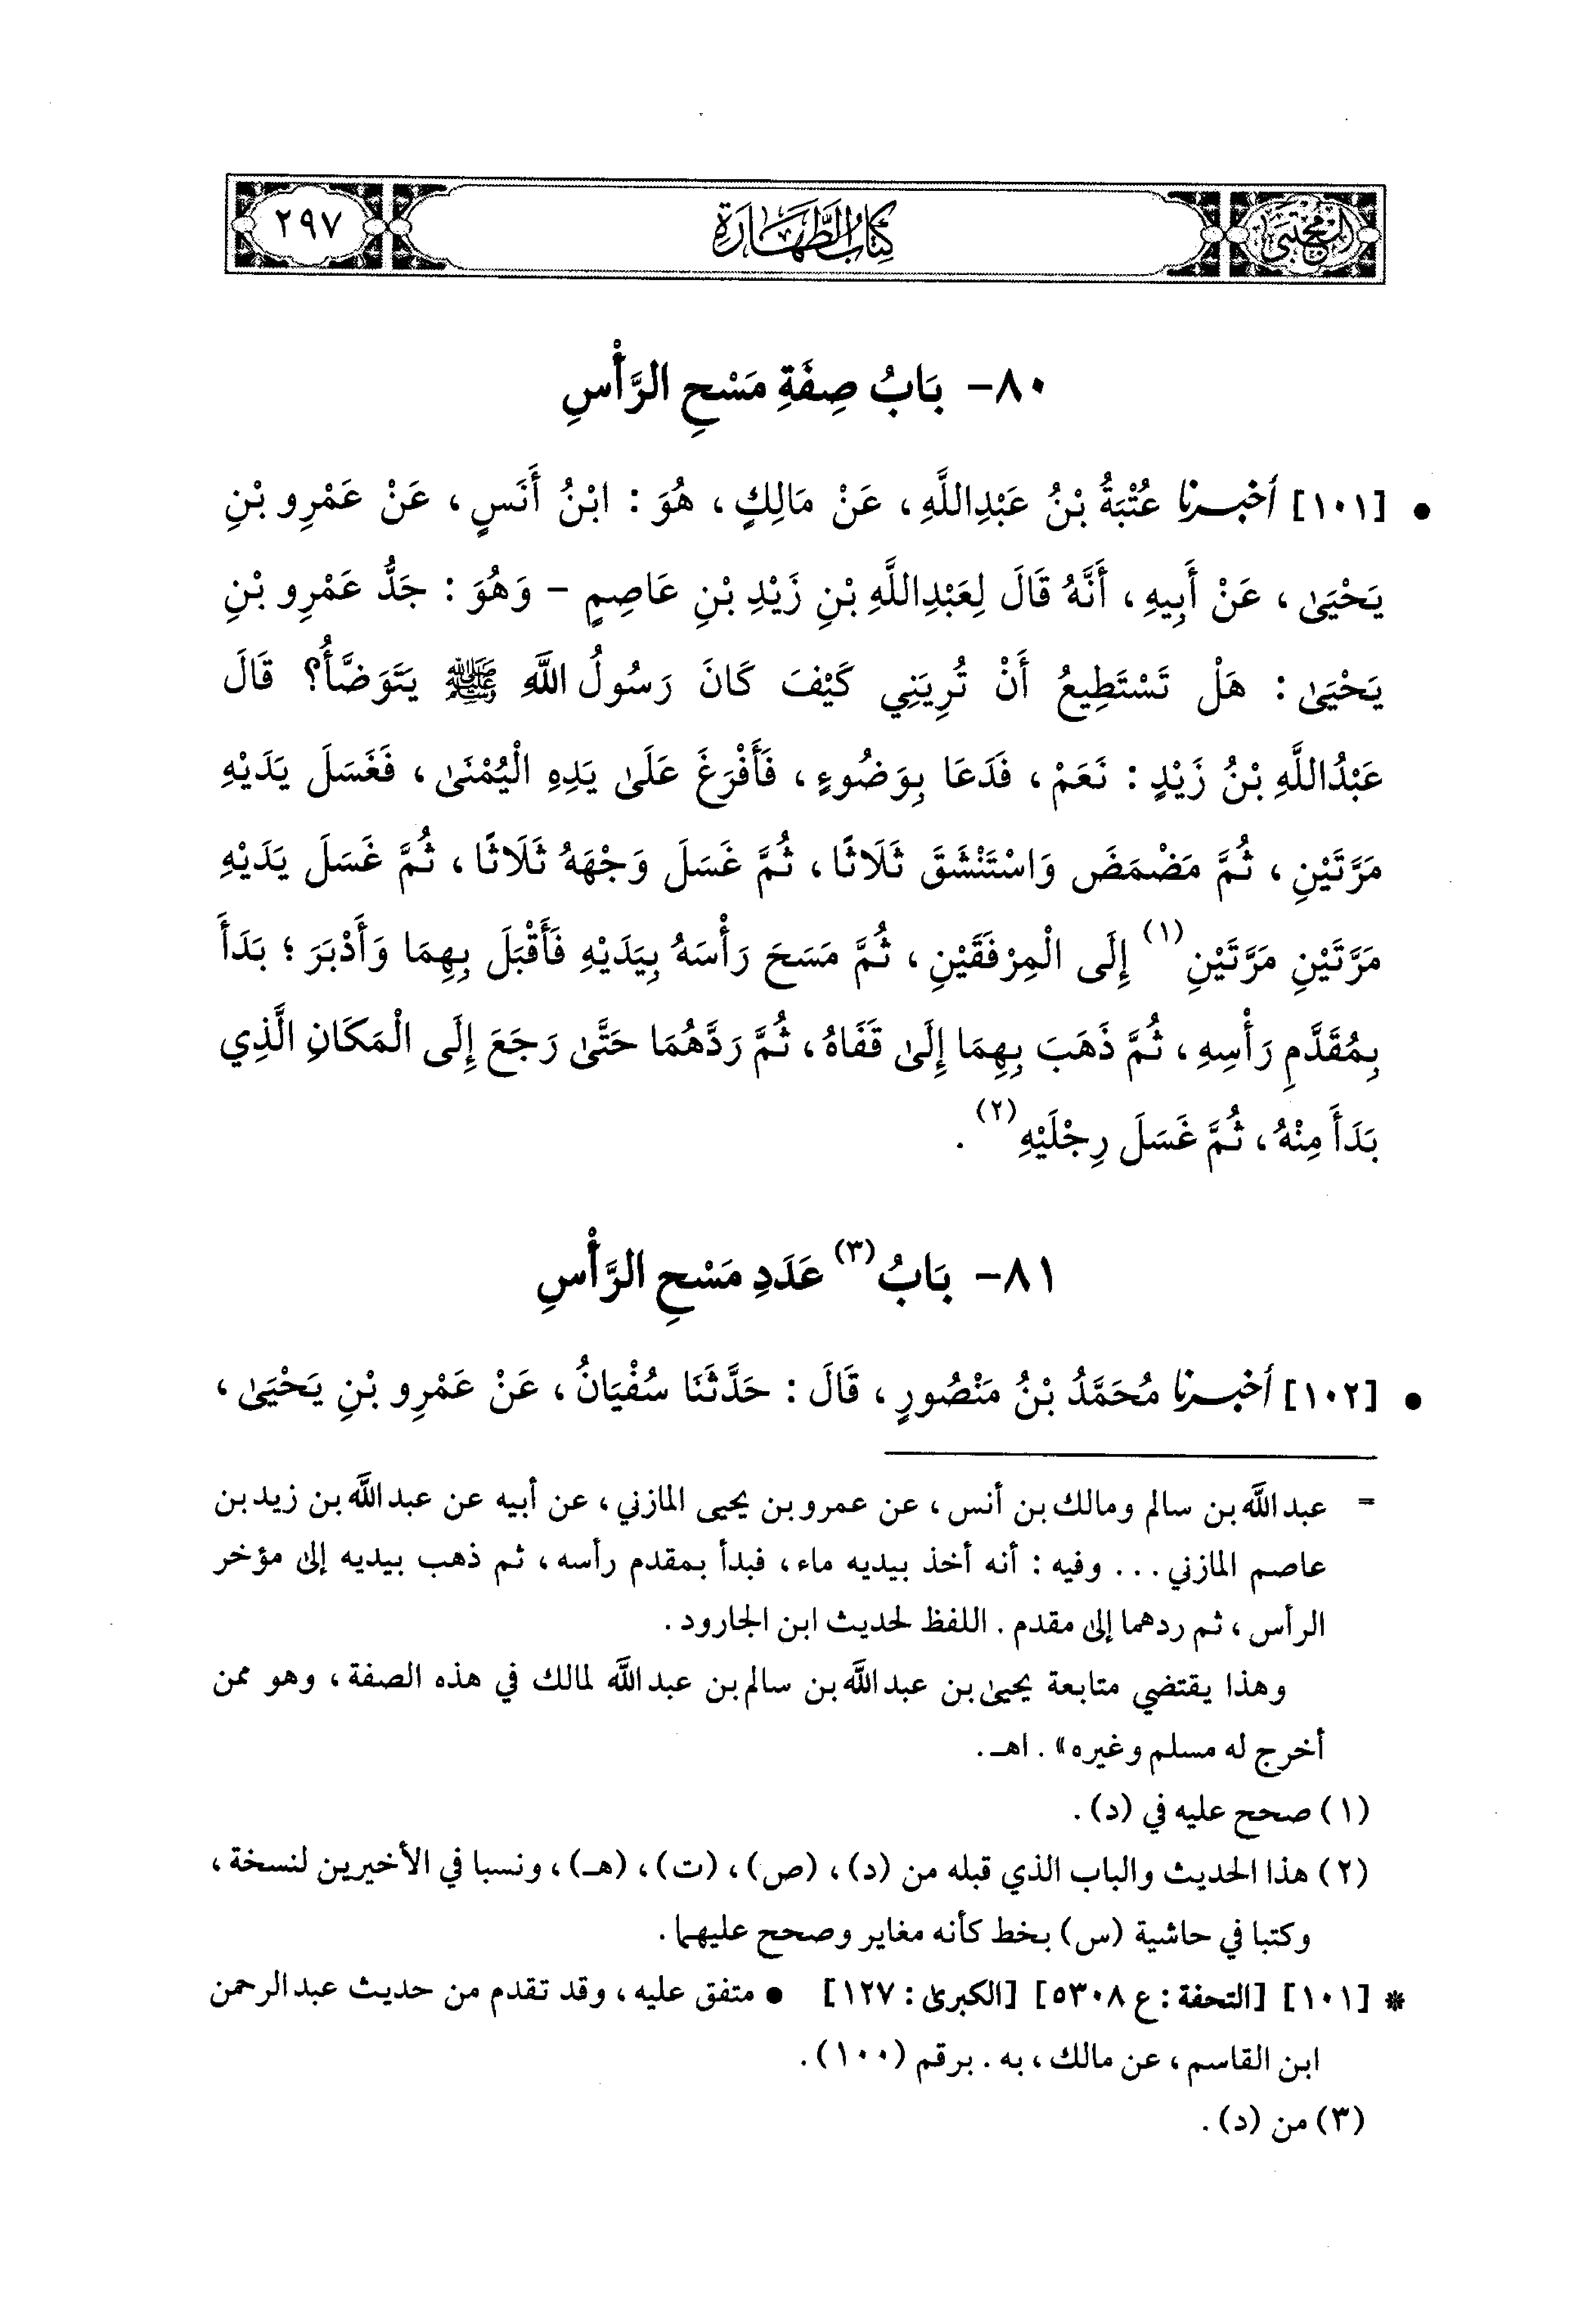 المجتبى
كتاب الطهارة
٢٩٧
٨٠- بَابُ صِفَةِ مَسْحِ الرَّأْسِ
• [١٠١] أخبرنا عُتْبَةُ بْنُ عَبْدِاللَّهِ، عَنْ مَالِكٍ، هُوَ: ابْنُ أَنَسٍ، عَنْ عَمْرِو بْنِ
يَحْيَىٰ، عَنْ أَبِيهِ، أَنَّهُ قَالَ لِعَبْدِاللَّهِ بْنِ زَيْدِ بْنِ عَاصِمٍ - وَهُوَ: جَدُّ عَمْرِو بْنِ
يَحْيَىٰ: هَلْ تَسْتَطِيعُ أَنْ تُرِيَنِي كَيْفَ كَانَ رَسُولُ اللَّهِ ﷺ يَتَوَضَّأُ؟ قَالَ
عَبْدُاللَّهِ بْنُ زَيْدٍ: نَعَمْ، فَدَعَا بِوَضُوءٍ، فَأَفْرَغَ عَلَىٰ يَدِهِ الْيُمْنَىٰ، فَغَسَلَ يَدَيْهِ
مَرَّتَيْنِ، ثُمَّ مَضْمَضَ وَاسْتَنْشَقَ ثَلَاثًا، ثُمَّ غَسَلَ وَجْهَهُ ثَلَاثًا، ثُمَّ غَسَلَ يَدَيْهِ
مَرَّتَيْنِ مَرَّتَيْنِ(١) إِلَى الْمِرْفَقَيْنِ، ثُمَّ مَسَحَ رَأْسَهُ بِيَدَيْهِ فَأَقْبَلَ بِهِمَا وَأَدْبَرَ؛ بَدَأَ
بِمُقَدَّمِ رَأْسِهِ، ثُمَّ ذَهَبَ بِهِمَا إِلَىٰ قَفَاهُ، ثُمَّ رَدَّهُمَا حَتَّىٰ رَجَعَ إِلَى الْمَكَانِ الَّذِي
بَدَأَ مِنْهُ، ثُمَّ غَسَلَ رِجْلَيْهِ(٢).
٨١- بَابُ(٣) عَدَدِ مَسْحِ الرَّأْسِ
• [١٠٢] أخبرنا مُحَمَّدُ بْنُ مَنْصُورٍ، قَالَ: حَدَّثَنَا سُفْيَانُ، عَنْ عَمْرِو بْنِ يَحْيَىٰ،
= عبداللَّه بن سالم ومالك بن أنس، عن عمرو بن يحيى المازني، عن أبيه عن عبداللَّه بن زيد بن
عاصم المازني... وفيه: أنه أخذ بيديه ماء، فبدأ بمقدم رأسه، ثم ذهب بيديه إلى مؤخر
الرأس، ثم ردهما إلى مقدم. اللفظ لحديث ابن الجارود.
وهذا يقتضي متابعة يحيى بن عبداللَّه بن سالم بن عبداللَّه لمالك في هذه الصفة، وهو ممن
أخرج له مسلم وغيره». اهـ.
(١) صحح عليه في (د).
(٢) هذا الحديث والباب الذي قبله من (د)، (ص)، (ت)، (هـ)، ونسبا في الأخيرين لنسخة،
وكتبا في حاشية (س) بخط كأنه مغاير وصحح عليهما.
* [١٠١] [التحفة: ع ٥٣٠٨] [الكبرى: ١٢٧] • متفق عليه، وقد تقدم من حديث عبدالرحمن
ابن القاسم، عن مالك، به. برقم (١٠٠).
(٣) من (د).